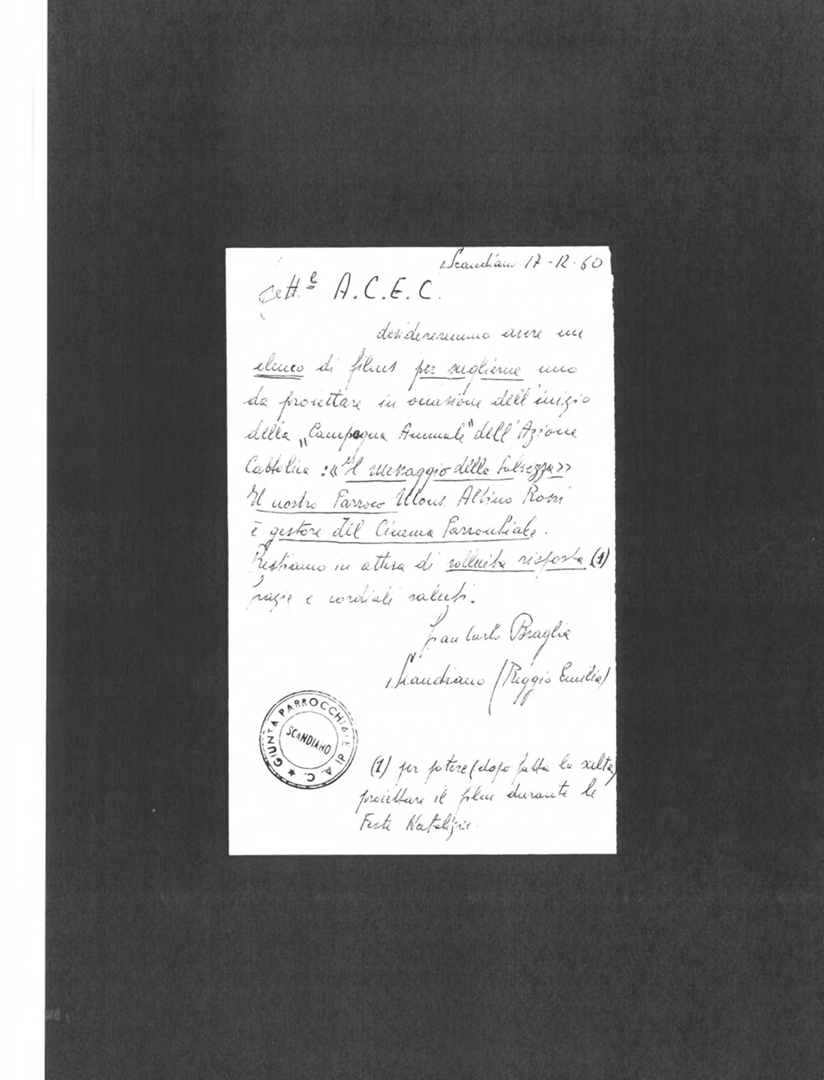 Scandiano 17-12-60
Sett.le A.C.E.C.
desidereremmo avere un
elenco di films per sceglierne uno
da proiettare in occasione dell'inizio
della "Campagna Annuale" dell'Azione
Cattolica : «Il messaggio della Salvezza»
Il nostro Parroco Mons. Albino Rossi
è gestore del Cinema Parrocchiale.
Restiamo in attesa di sollecita risposta (1)
grazie e cordiali saluti.
Gian Carlo Braglia
Scandiano (Reggio Emilia)
GIUNTA PARROCCHIALE di A. C.
SCANDIANO
(1) per potere (dopo fatta la scelta)
proiettare il film durante le
Feste Natalizie.